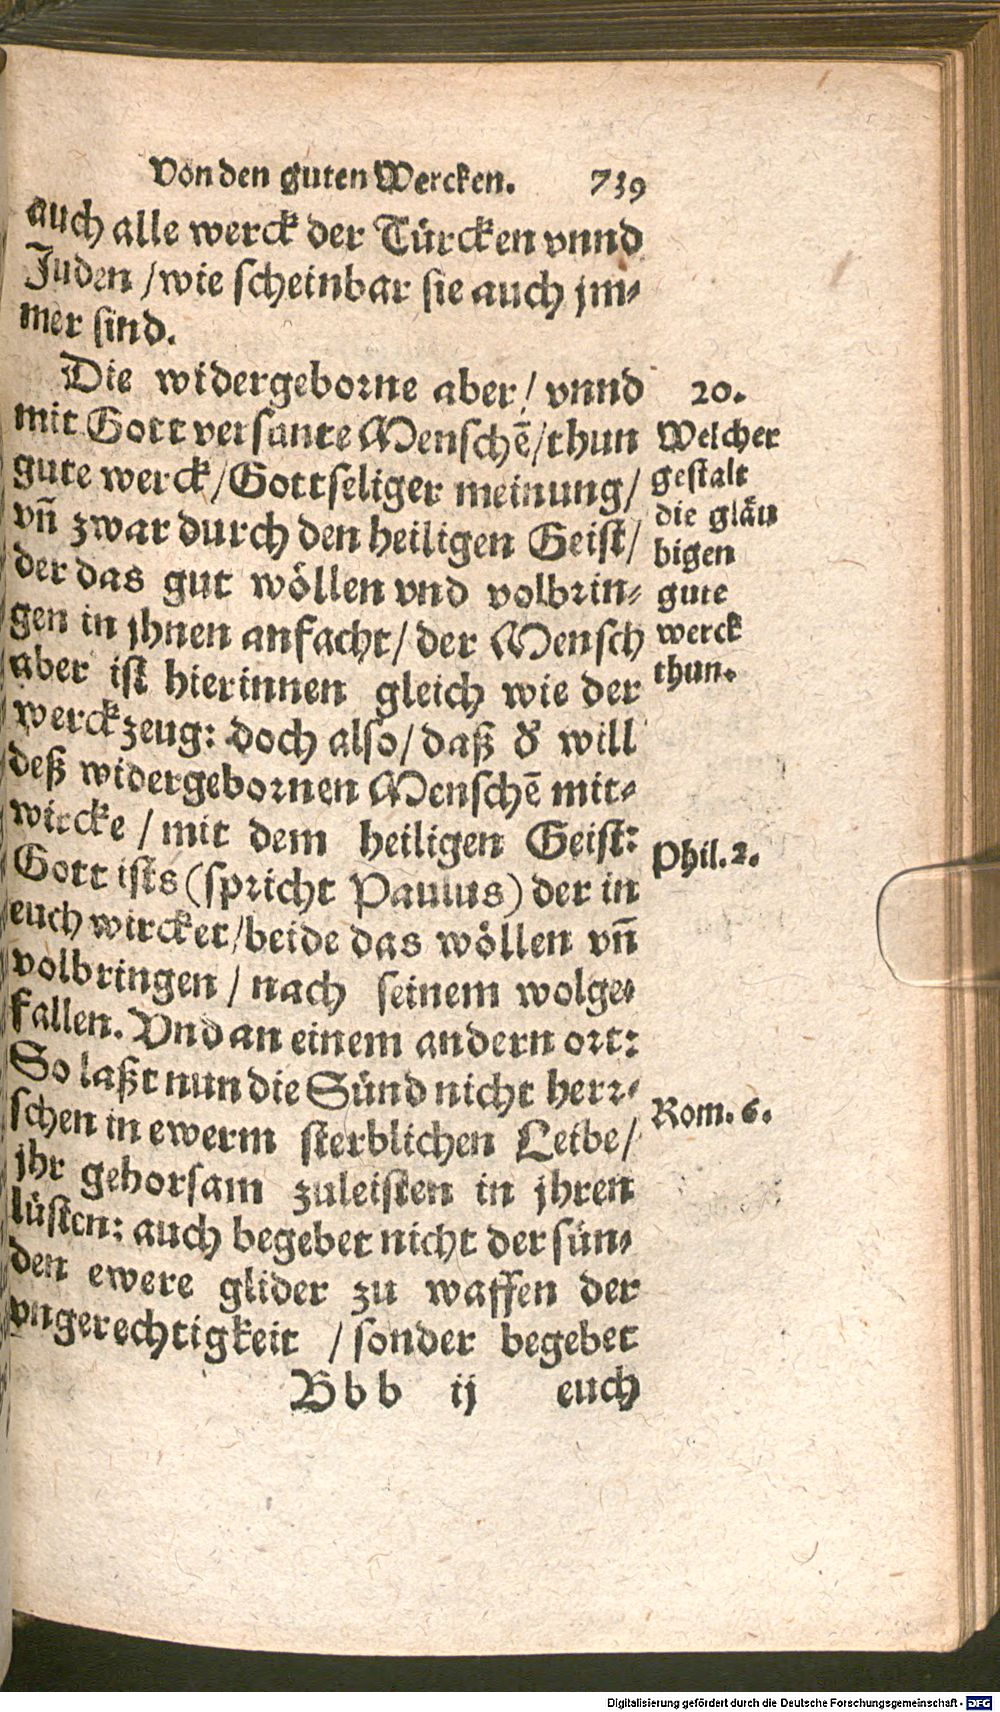 Von den guten Wercken. 739
auch alle werck der Türcken vnnd
Juden / wie scheinbar sie auch jm⸗
mer sind.
Die widergeborne aber / vnnd
mit Gott versante Menschẽ / thun
gute werck / Gottseliger meinung /
vñ zwar durch den heiligen Geist /
der das gut wöllen vnd volbrin⸗
gen in jhnen anfacht / der Mensch
aber ist hierinnen gleich wie der
werckzeug: doch also / daß d̕ will
deß widergebornen Menschẽ mit⸗
wircke / mit dem heiligen Geist:
Gott ists (spricht Paulus) der in
euch wircket / beide das wöllen vñ
volbringen / nach seinem wolge⸗
fallen. Vnd an einem andern ort:
So laßt nun die Sünd nicht herr⸗
schen in ewerm sterblichen Leibe /
jhr gehorsam zuleisten in jhren
lüsten: auch begebet nicht der sün⸗
den ewere glider zu waffen der
vngerechtigkeit / sonder begebet
Bbb ij euch
20.
Welcher
gestalt
die gläu
bigen
gute
werck
thun.
Phil. 2.
Rom. 6.
Digitalisierung gefördert durch die Deutsche Forschungsgemeinschaft - DFG